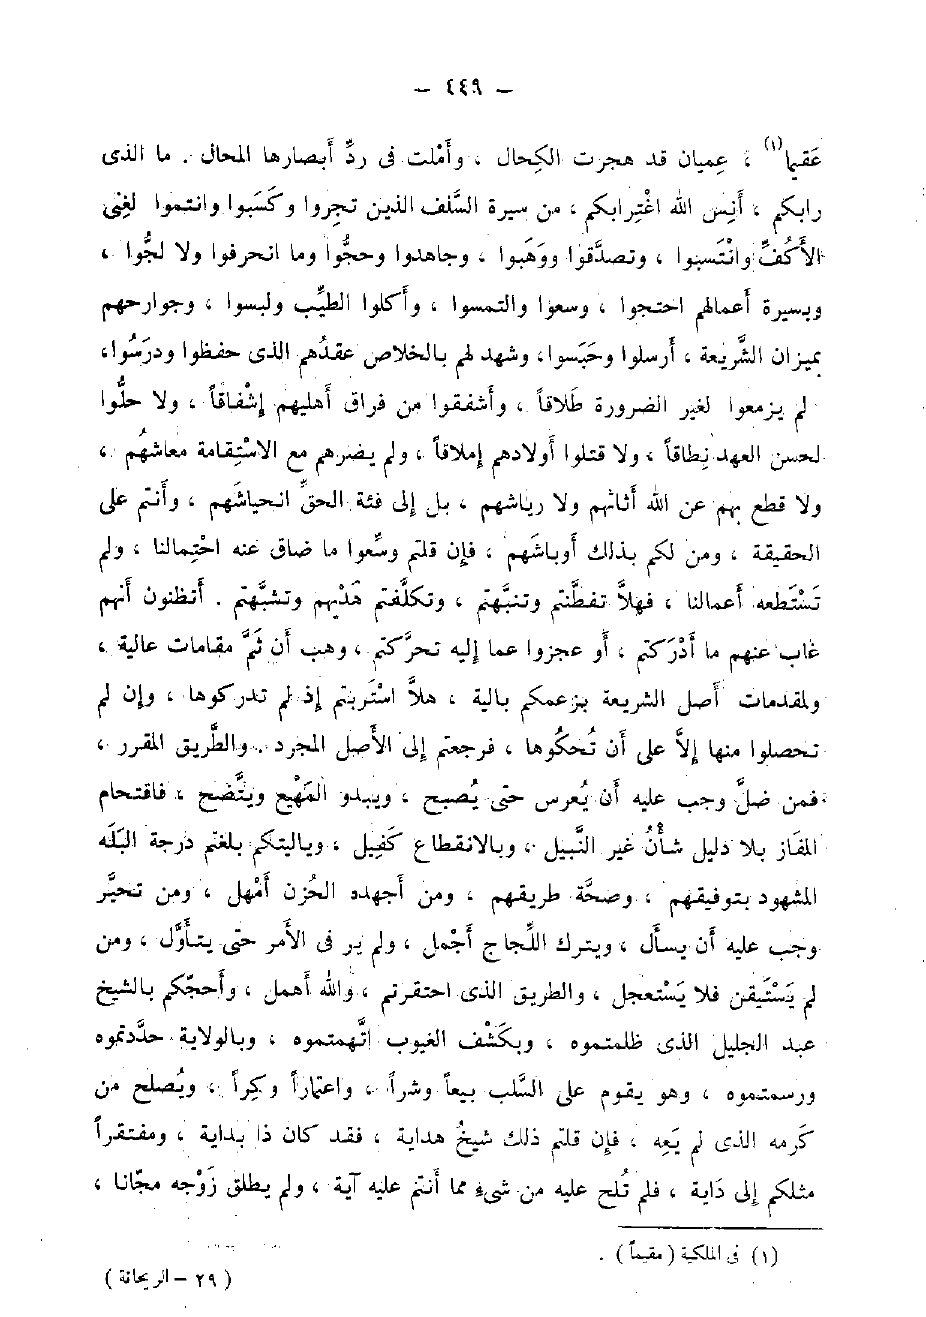 — ٤٤٩ —
عَقيما(١) ، عِميان قد هجرت الكِحال ، وأمْلت فى ردِّ أبصارها المحال . ما الذى
رابكم ، أَنِس الله اغْترابكم ، من سيرة السَّلف الذين تجِروا وكَسَبوا وانتموا لغِنى
الأَكُفِّ وانْتَسبوا ، وتصدَّقوا ووَهَبوا ، وجاهدوا وحجُّوا وما انحرفوا ولا لجُّوا ،
وبسيرة أعمالهم احتجوا ، وسعوا والتمسوا ، وأكلوا الطيِّب ولبسوا ، وجوارحهم
بميزان الشَّريعة ، أرسلوا وحَبَسوا، وشهد لهم بالخلاص عقدُهم الذى حفظوا ودرَسُوا،
لم يزمعوا لغير الضرورة طَلاقاً ، وأشفقوا من فراق أهليهم إشْفاقاً ، ولا حلُّوا
لحسن العهد نِطاقاً ، ولا قتلوا أولادهم إملاقاً ، ولم يضرهم مع الاسْتِقامة معاشهُم ،
ولا قطع بهم عن الله أثاثهم ولا رياشهم ، بل إلى فئة الحقِّ انحياشَهم ، وأنتم على
الحقيقة ، ومن لكم بذلك أوباشَهم ، فإن قلتم وسَّعوا ما ضاق عنه احْتِمالنا ، ولم
تَسْتَطعه أعمالنا ، فهلاَّ تفطَّنتم وتنبَّهتم ، وتكلَّفتم هَدْيهم وتشبَّهتم . أتظنون أنهم
غاب عنهم ما أدْرَكتم ، أو عجزوا عما إليه تحرَّكتم ، وهب أن ثَمَّ مقامات عالية ،
ولمقدمات أصل الشريعة بزعمكم بالية ، هلاَّ اسْتَربتم إذ لم تدركوها ، وإن لم
تحصلوا منها إلاَّ على أن تُحكُوها ، فرجعتم إلى الأصل المجرد . والطَّريق المقرر ،
فمن ضلَّ وجب عليه أن يُعرس حتى يُصبح ، ويبدو المَهْيع ويتَّضح ، فاقتحام
المفَاز بلا دليل شأنُ غير النَّبيل ، وبالانقطاع كَفِيل ، وياليتكم بلغتم درجة البَلَه
المشهود بتوفيقهم ، وصحَّة طريقهم ، ومن أجهده الحُزن أمْهل ، ومن تحيَّر
وجب عليه أن يسأل ، ويترك اللِّجاج أجْمل ، ولم ير فى الأمر حتى يتأوَّل ، ومن
لم يَسْتَيقن فلا يَسْتعجل ، والطريق الذى احتقرتم ، والله أهمل ، وأحجّكم بالشيخ
عبد الجليل الذى ظلمتموه ، وبكَشْف الغيوب اتَّهمتموه ، وبالولاية حدَّدتموه
ورسمتموه ، وهو يقوم على السَّلب بيعاً وشراً ، واعتماراً وكِراً ، ويُصلح من
كَرمه الذى لم يَعِه ، فإن قلتم ذلك شيخُ هداية ، فقد كان ذا بداية ، ومفتقراً
مثلكم إلى دَاية ، فلم تُلح عليه من شىء مما أنتم عليه آية ، ولم يطلق زَوْجه مجّانا ،
(١) فى الملكية ( مقيماً ) .
( ٢٩ – الريحانة )